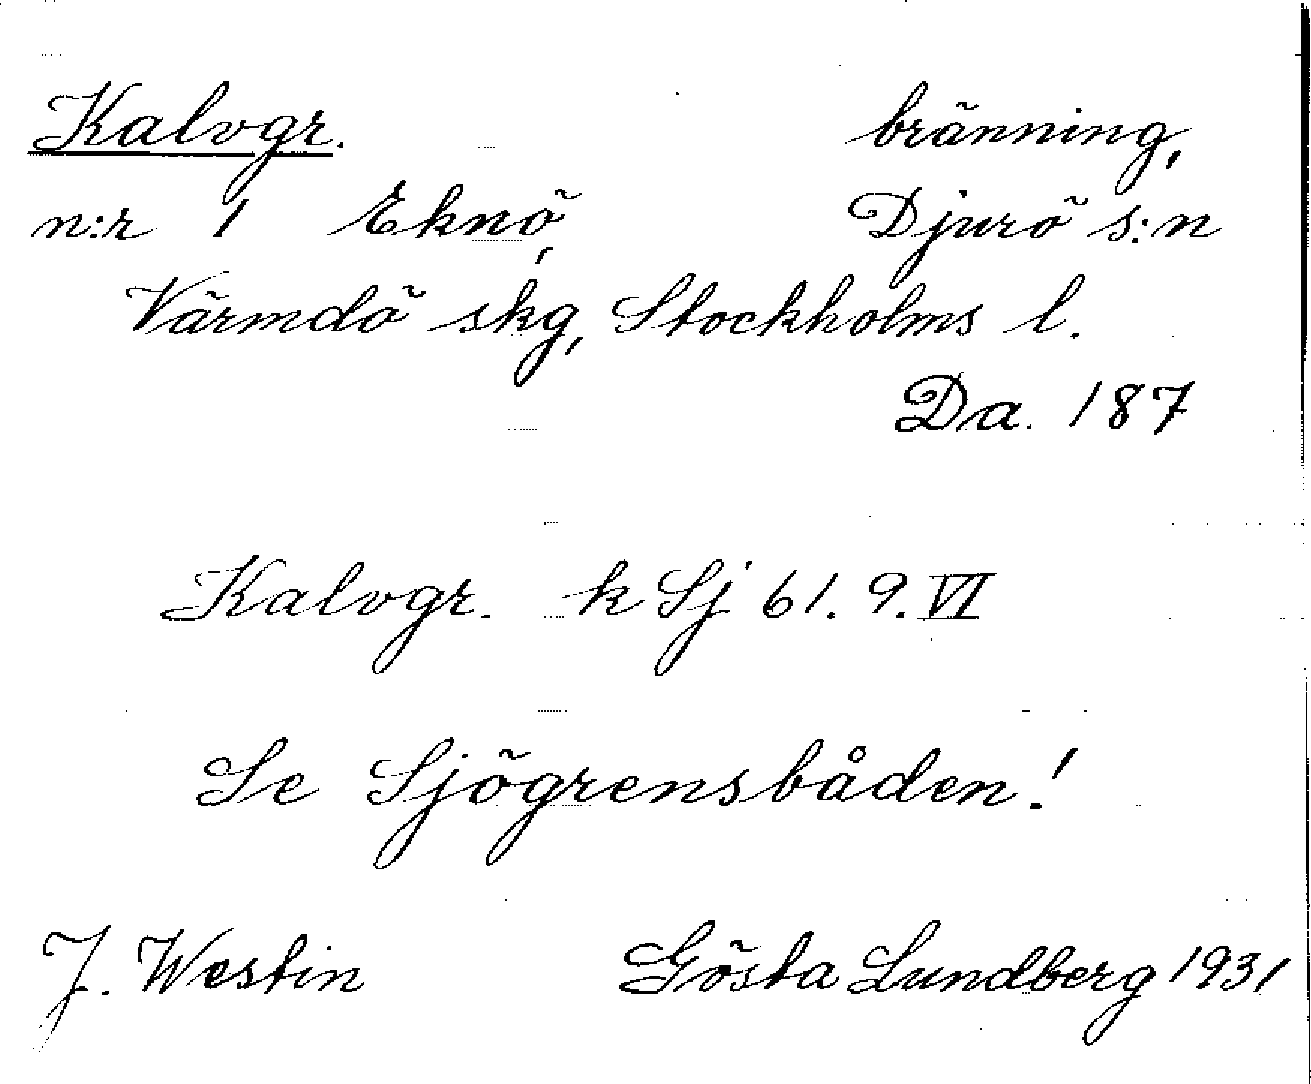 Kalvgr. bränning,
n:r 1 Eknö, Djurö s:n
Värmdö skg, Stockholms l.
Da. 187
Kalvgr. k Sj 61. 9. VI
Se Sjögrensbåden!
J. Westin Gösta Lundberg 1931